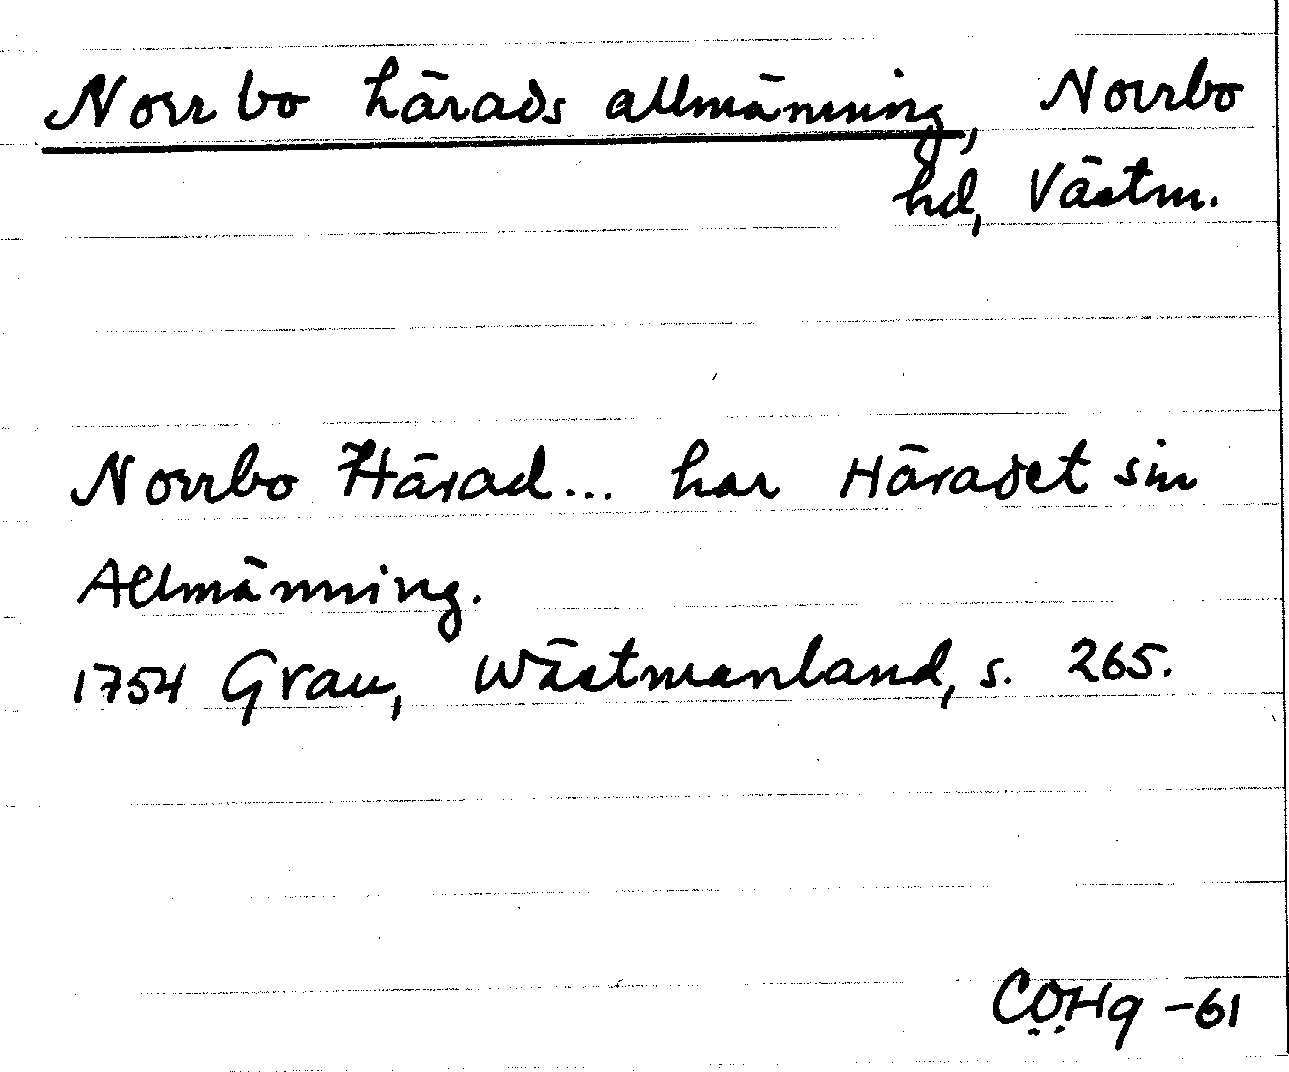 Norrbo härads allmänning, Norrbo
hd, Västm.
Norrbo Härad... har Häradet sin
Allmänning.
1754 Grau, Wästmanland, s. 265.
COHg -61